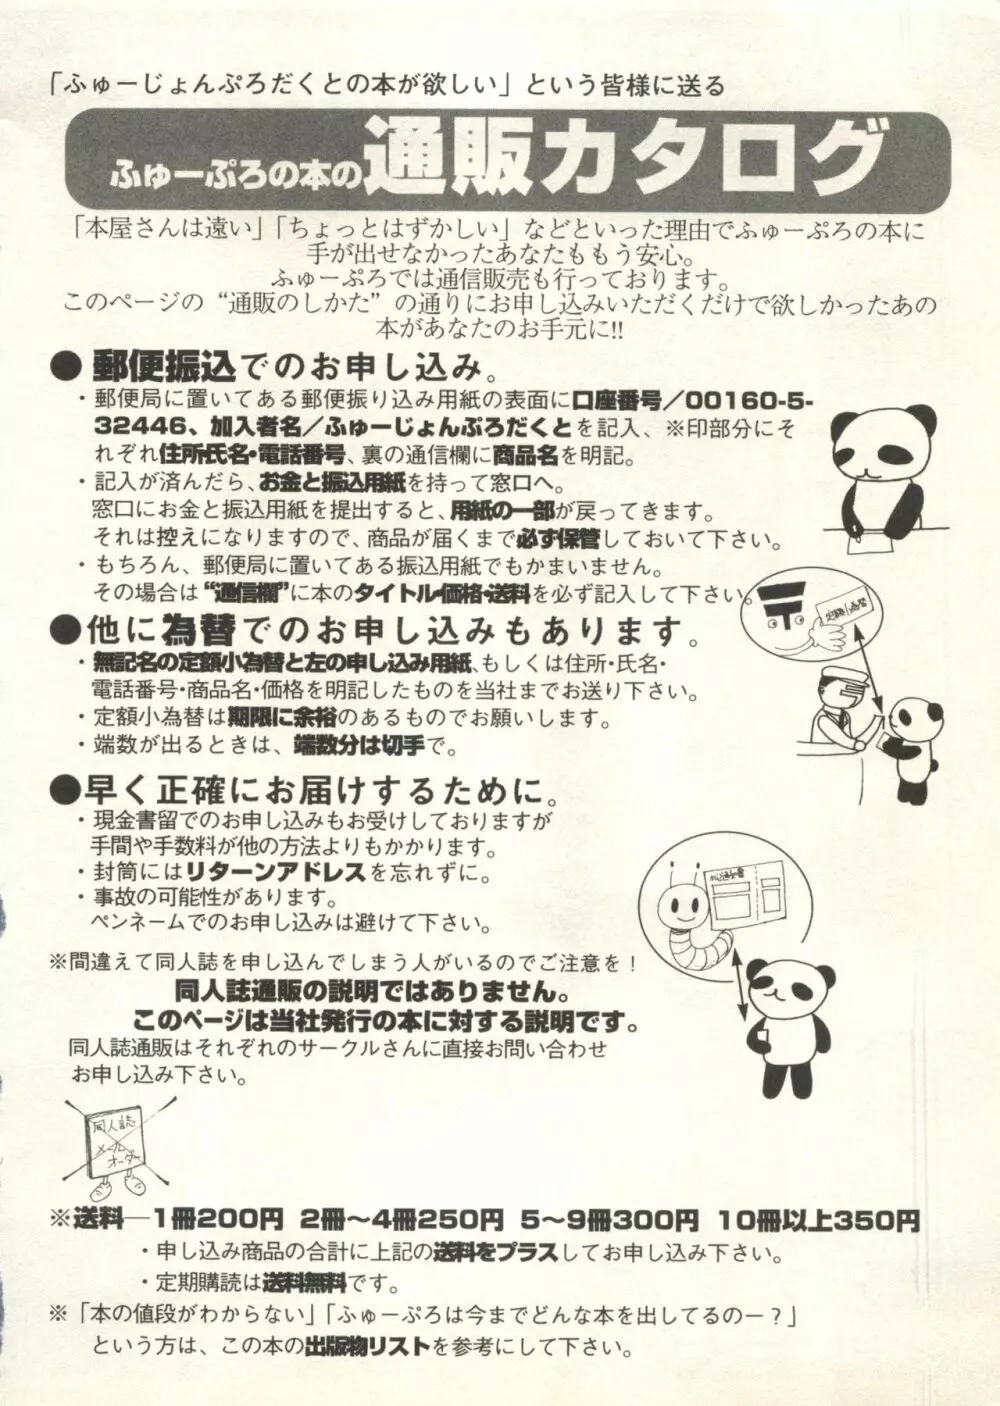 「ふゅーじょんぷろだくとの本が欲しい」という皆様に送る
ふゅーぷろの本の通販カタログ
「本屋さんは遠い」「ちょっとはずかしい」などといった理由でふゅーぷろの本に
手が出せなかったあなたももう安心。
ふゅーぷろでは通信販売も行っております。
このページの“通販のしかた”の通りにお申し込みいただくだけで欲しかったあの
本があなたのお手元に!!
●郵便振込でのお申し込み。
・郵便局に置いてある郵便振り込み用紙の表面に口座番号／00160-5-
32446、加入者名／ふゅーじょんぷろだくとを記入、※印部分にそ
れぞれ住所・氏名・電話番号、裏の通信欄に商品名を明記。
・記入が済んだら、お金と振込用紙を持って窓口へ。
窓口にお金と振込用紙を提出すると、用紙の一部が戻ってきます。
それは控えになりますので、商品が届くまで必ず保管しておいて下さい。
・もちろん、郵便局に置いてある振込用紙でもかまいません。
その場合は“通信欄”に本のタイトル・価格・送料を必ず記入して下さい。
定額小為替
●他に為替でのお申し込みもあります。
・無記名の定額小為替と左の申し込み用紙、もしくは住所・氏名・
電話番号・商品名・価格を明記したものを当社までお送り下さい。
・定額小為替は期限に余裕のあるものでお願いします。
・端数が出るときは、端数分は切手で。
●早く正確にお届けするために。
・現金書留でのお申し込みもお受けしておりますが
手間や手数料が他の方法よりもかかります。
・封筒にはリターンアドレスを忘れずに。
・事故の可能性があります。
ペンネームでのお申し込みは避けて下さい。
※間違えて同人誌を申し込んでしまう人がいるのでご注意を！
同人誌通販の説明ではありません。
このページは当社発行の本に対する説明です。
同人誌通販はそれぞれのサークルさんに直接お問い合わせ
お申し込み下さい。
同人誌
メール
オーダー
※送料―1冊200円 2冊〜4冊250円 5〜9冊300円 10冊以上350円
・申し込み商品の合計に上記の送料をプラスしてお申し込み下さい。
・定期購読は送料無料です。
※「本の値段がわからない」「ふゅーぷろは今までどんな本を出してるのー？」
という方は、この本の出版物リストを参考にして下さい。